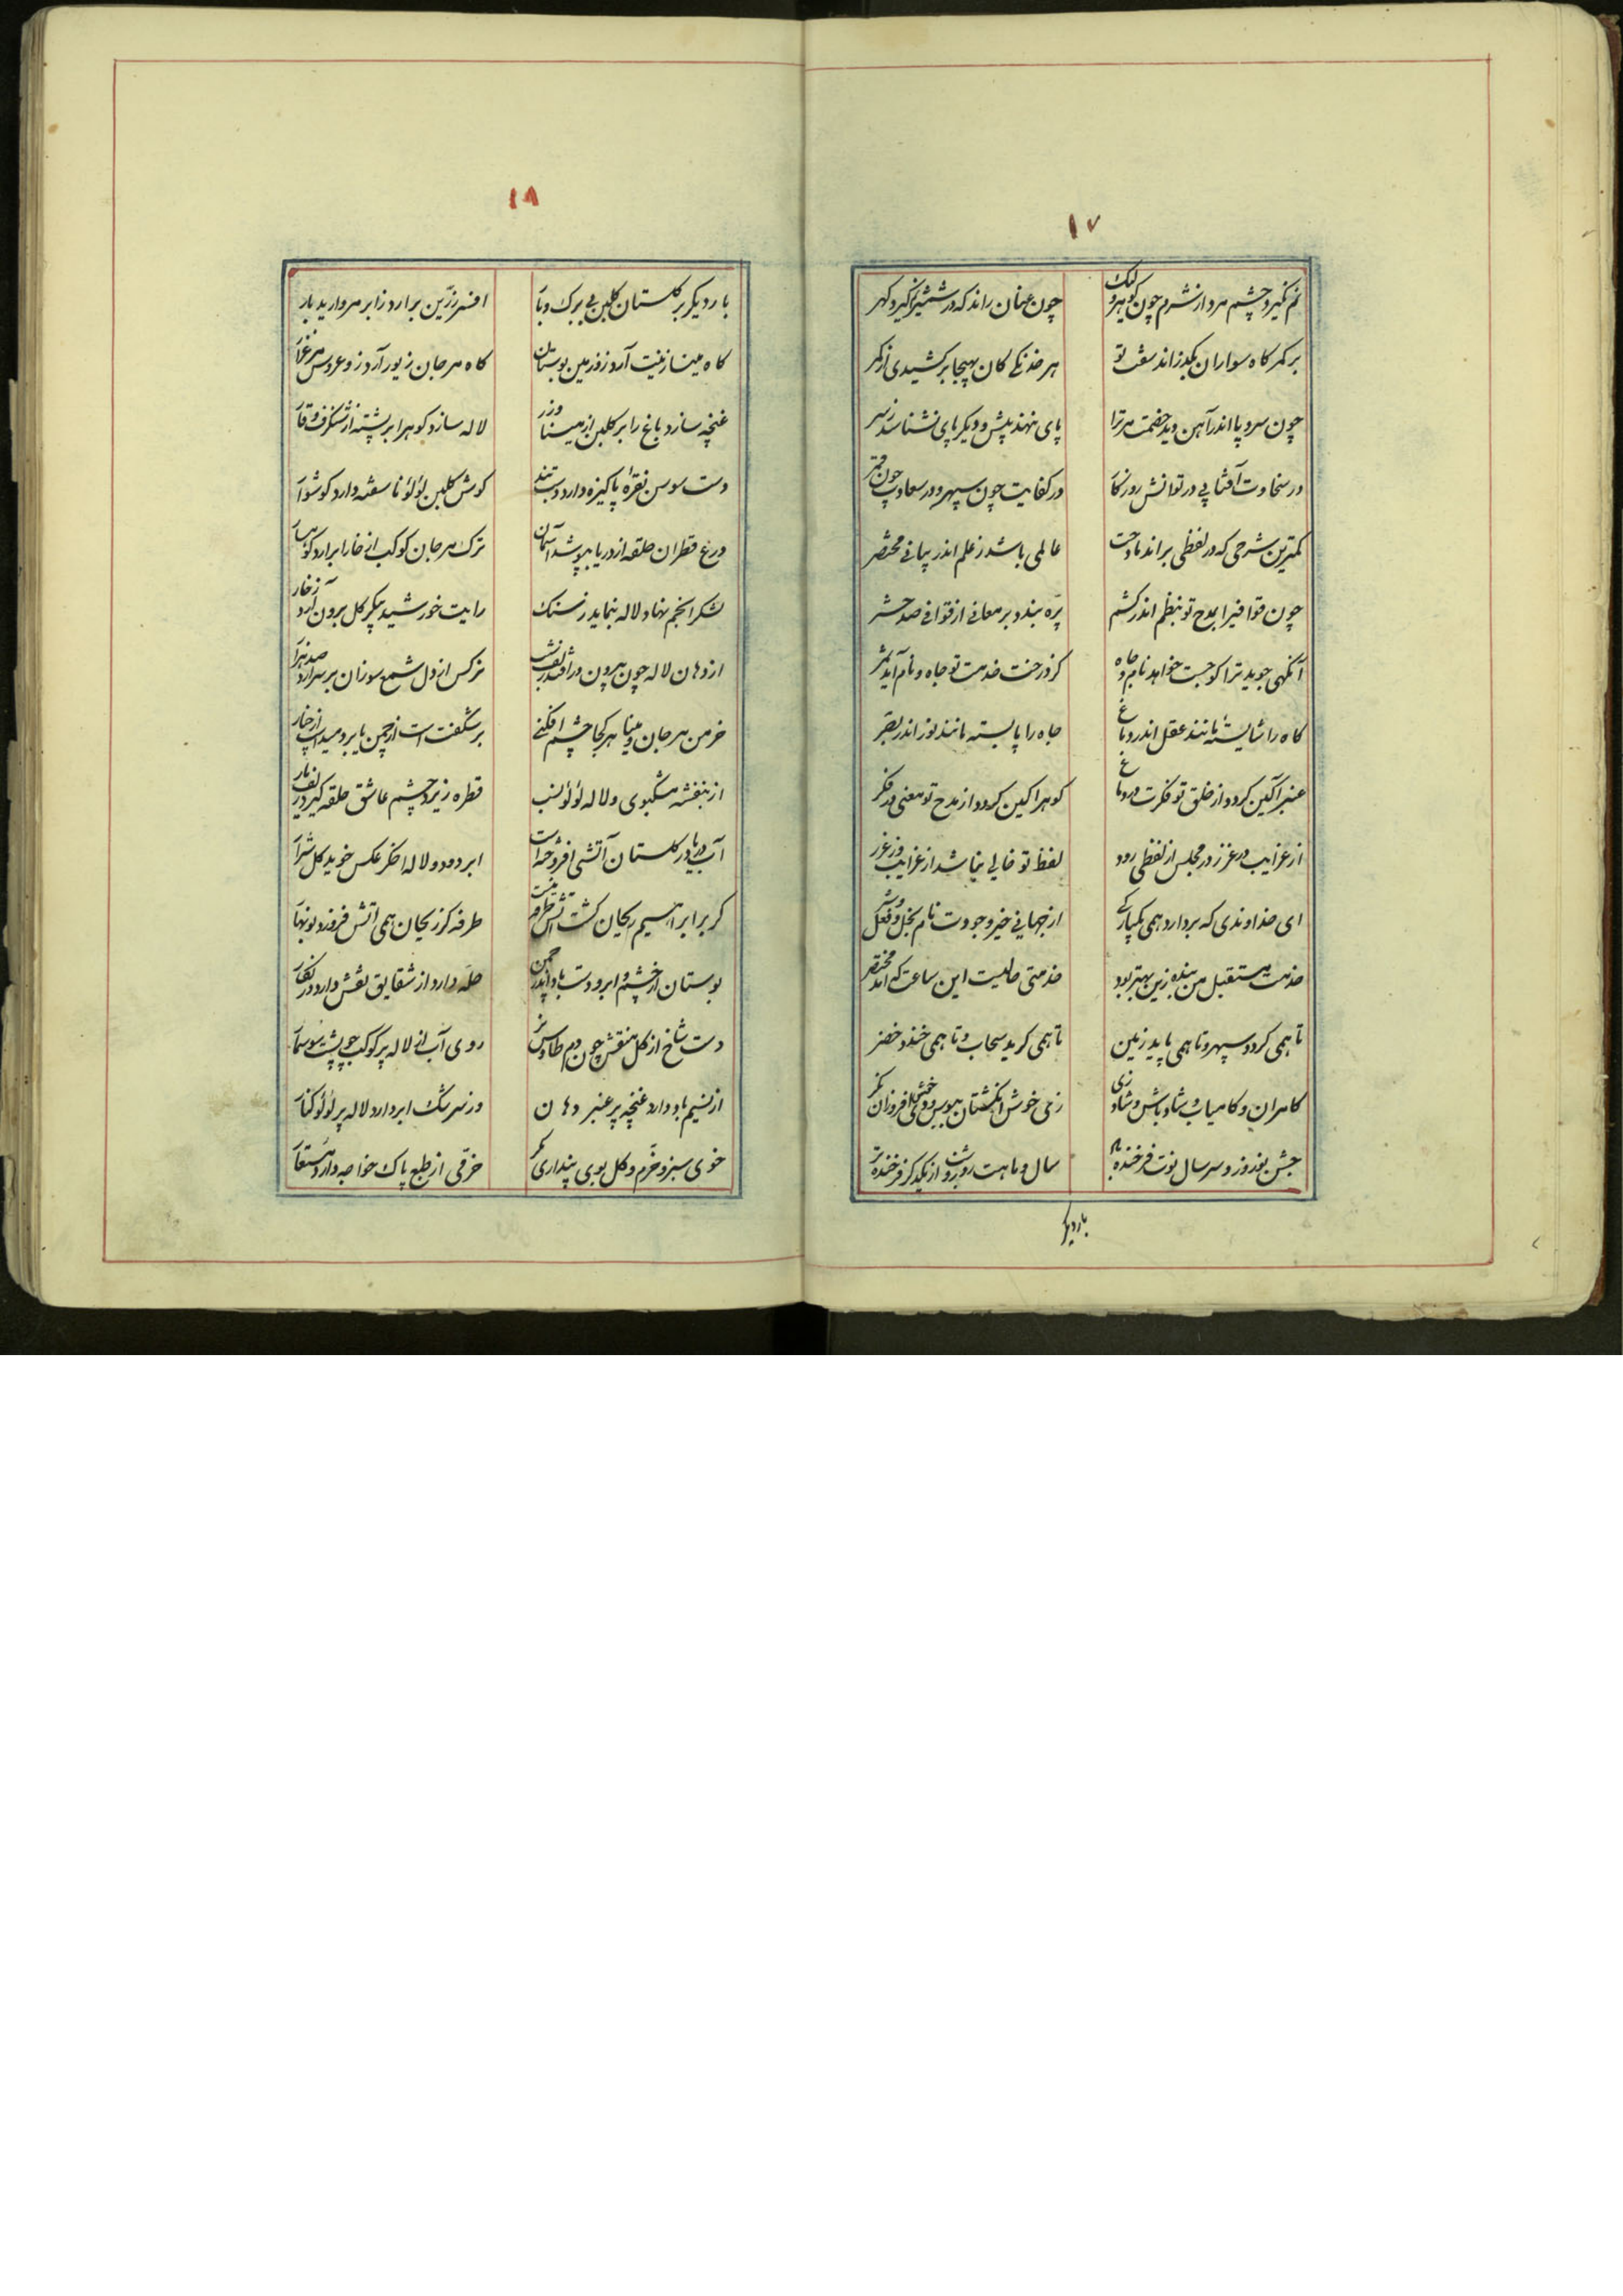 ١٧
نم نگیرد چشم مرد از شرم چون گوهر و کلک چون عنان راند که در شمشیر گیرد گهر
بر کمرکاه سواران بگذراند سفت تو هر خدنگی کان بهیجا برکشیدی از کمر
چون سر و پا اندر آهن دید خصمت مر ترا پای ننهد پیش و دیگر پای نشناسد ز سر
در سخاوت آفتابی در توانش روزگار در کفایت چون سپهر و در سعادت چون قمر
کمترین شرحی که در لفظی براند مادحت عالمی باشد ز علم اندر بیانی مختصر
چون قوافیرا بمدح تو بنظم اندر کشم پره بندد بر معانی از قوافی صد حشر
آنگهی جوید ترا کو جست خواهد نام و جاه کز درخت خدمت تو جاه و نام آید ثمر
کاه را شایسته مانند عقل اندر دماغ جاه را بایسته مانند نور اندر بصر
عنبرآکین گردد از خلق تو فکرت در دماغ گوهرآکین گردد از مدح تو معنی در فکر
از غرایب در غرر در مجلس از لفظی رود لفظ تو خالی نباشد از غرایب وز غرر
ای خداوندی که بردارد همی یکبارکی از جهانی خیر وجودت نام بخل و فعل شر
خدمت مستقبل من بنده زین بهتر بود خدمتی حالیست این ساعت که آمد مختصر
تا همی گردد سپهر و تا همی پاید زمین تا همی گرید سحاب و تا همی خندد خضر
کامران و کامیاب و شاد باش و شاد زی زمی خوش
جشن نوروز و سر سال نوت فرخنده باد سال و ماهت روز و شب از یکدگر فرخنده تر
بار دیگر
١٨
بار دیگر بر گلستان گلبن بی برک و بار افسر زرین برآرد ز ابر مروارید بار
گاه مینا زینت آرد زو زمین بوستان گاه مرجان زیور آرد زو عروس مرغزار
غنچه سازد باغ را بر گلبن از مینا و زر لاله سازد کوهرا بر پشته از شنگرف و قار
دست سوسن نقره پاکیزه دارد دستبند گوش گلبن لؤلؤ ناسفته دارد گوشوار
درع قطران حلقه از دریا بپوشد آسمان ترک مرجان کوکب از خارا برآرد کوهسار
لشکر انجم نهاد لاله بنماید ز سنک رایت خورشید پیکر گل برون آرد ز خار
از دهان لاله چون بیرون نرگس از دل شمع سوزان بر سر آرد صد هزار
خرمن مرجان و مینا هر کجا چشم افکنی بر شگفت است از چمن یا بر دمید است از خار
از بنفشه مشکبوی و لاله لؤلؤ نسب قطره زیر چشم عاشق حلقه گیر در زلف یار
آب دریا در گلستان آتشی افروخته است ابر دود و لاله اخگر عکس خوید گل شرار
گر بر ابراهیم ریحان گشت آتش طرفه نیست طرفه کز ریحان همی آتش فروزد نوبهار
بوستان از خشم ابر و دست باد اندر چمن حله دارد از شقایق نقش دارد در نگار
دست شاخ از گل منقش چون دم طاوس نر روی آب از لاله پر کوکب چو پشت سوسمار
از نسیم باد دارد غنچه پر عنبر دهان وز سرشک ابر دارد لاله پر لؤلؤ کنار
خوی سبز و خرم و گل بوی پنداری مگر خرمی از طبع پاک خواجه دارد مستعار